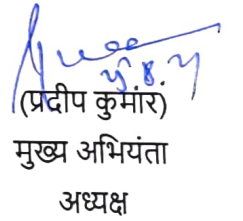 (प्रदीप कुमांर)
मुख्य अभियंता
अध्यक्ष